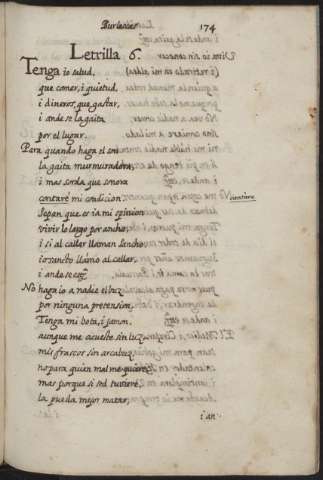 Burlescas
174
Letrilla 6.
Tenga io salud,
que comer, i quietud,
i dineros, que gastar,
i ande se la gaita
por el lugar.
Para quando haga el son
la gaita murmuradora,
i mas sorda que sonora
contaré mi condicion.
Sepan que es ia mi opinion
vivir lo largo por ancho,
i si al callar llaman Sancho
io sancto llamo al callar.
i ande se etc.
No haga io a nadie el buz
por ninguna pretension,
Tenga mi bota, i jamon.
aunque me acueste sin luz
mis frascos sin arcabuz
no para quien mal me quiere
mas porque si sed tuviere
la pueda mejor matar,
i an
cantare